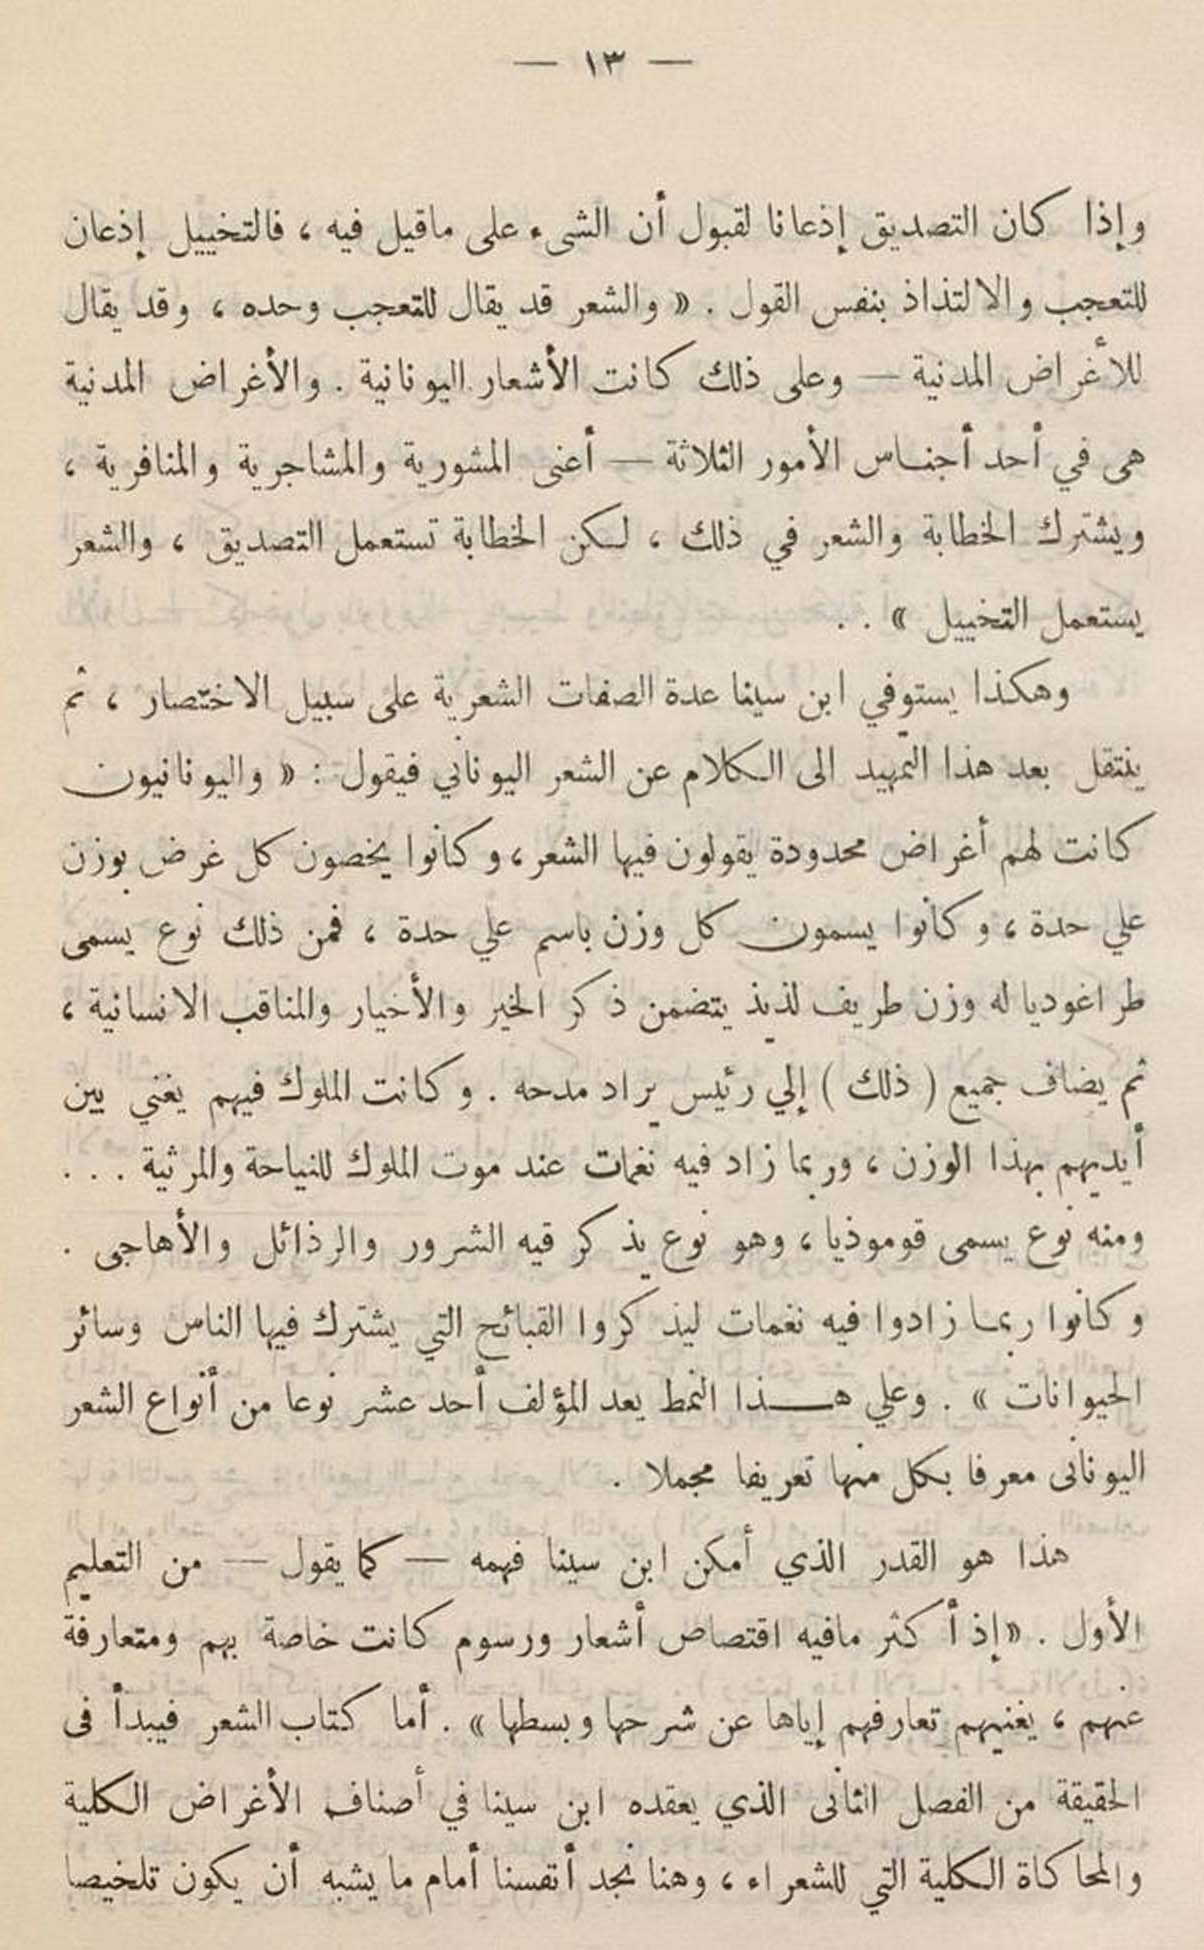 — ١٣ —
وإذا كان التصديق إذعانا لقبول أن الشىء على ماقيل فيه ، فالتخييل إذعان
للتعجب والالتذاذ بنفس القول . « والشعر قد يقال للتعجب وحده ، وقد يقال
للأغراض المدنية — وعلى ذلك كانت الأشعار اليونانية . والأغراض المدنية
هى في أحد أجناس الأمور الثلاثة — أعنى المشورية والمشاجرية والمنافرية ،
ويشترك الخطابة والشعر في ذلك ، لكن الخطابة تستعمل التصديق ، والشعر
يستعمل التخييل » . .
وهكذا يستوفي ابن سينا عدة الصفات الشعرية على سبيل الاختصار ، ثم
ينتقل بعد هذا التمهيد الى الكلام عن الشعر اليوناني فيقول : « واليونانيون
كانت لهم أغراض محدودة يقولون فيها الشعر ، وكانوا يخصون كل غرض بوزن
علي حدة ، وكانوا يسمون كل وزن باسم علي حدة ، فمن ذلك نوع يسمى
طراغوديا له وزن طريف لذيذ يتضمن ذكر الخير والأخيار والمناقب الانسانية ،
ثم يضاف جميع ( ذلك ) إلي رئيس يراد مدحه . وكانت الملوك فيهم يغني بين
أيديهم بهذا الوزن ، وربما زاد فيه نغمات عند موت الملوك للنياحة والمرثية . . .
ومنه نوع يسمى قوموذيا ، وهو نوع يذكر قيه الشرور والرذائل والأهاجى .
وكانوا ربما زادوا فيه نغمات ليذكروا القبائح التي يشترك فيها الناس وسائر
الحيوانات » . وعلي هـذا النمط يعد المؤلف أحد عشر نوعا من أنواع الشعر
اليونانى معرفا بكل منها تعريفا مجملا .
هذا هو القدر الذي أمكن ابن سينا فهمه — كما يقول — من التعليم
الأول . « إذ أكثر مافيه اقتصاص أشعار ورسوم كانت خاصة بهم ومتعارفة
عنهم ، يغنيهم تعارفهم إياها عن شرحها وبسطها » . أما كتاب الشعر فيبدأ فى
الحقيقة من الفصل الثانى الذي يعقده ابن سينا في أصناف الأغراض الكلية
والمحاكاة الكلية التي للشعراء ، وهنا نجد أنفسنا أمام ما يشبه أن يكون تلخيصا